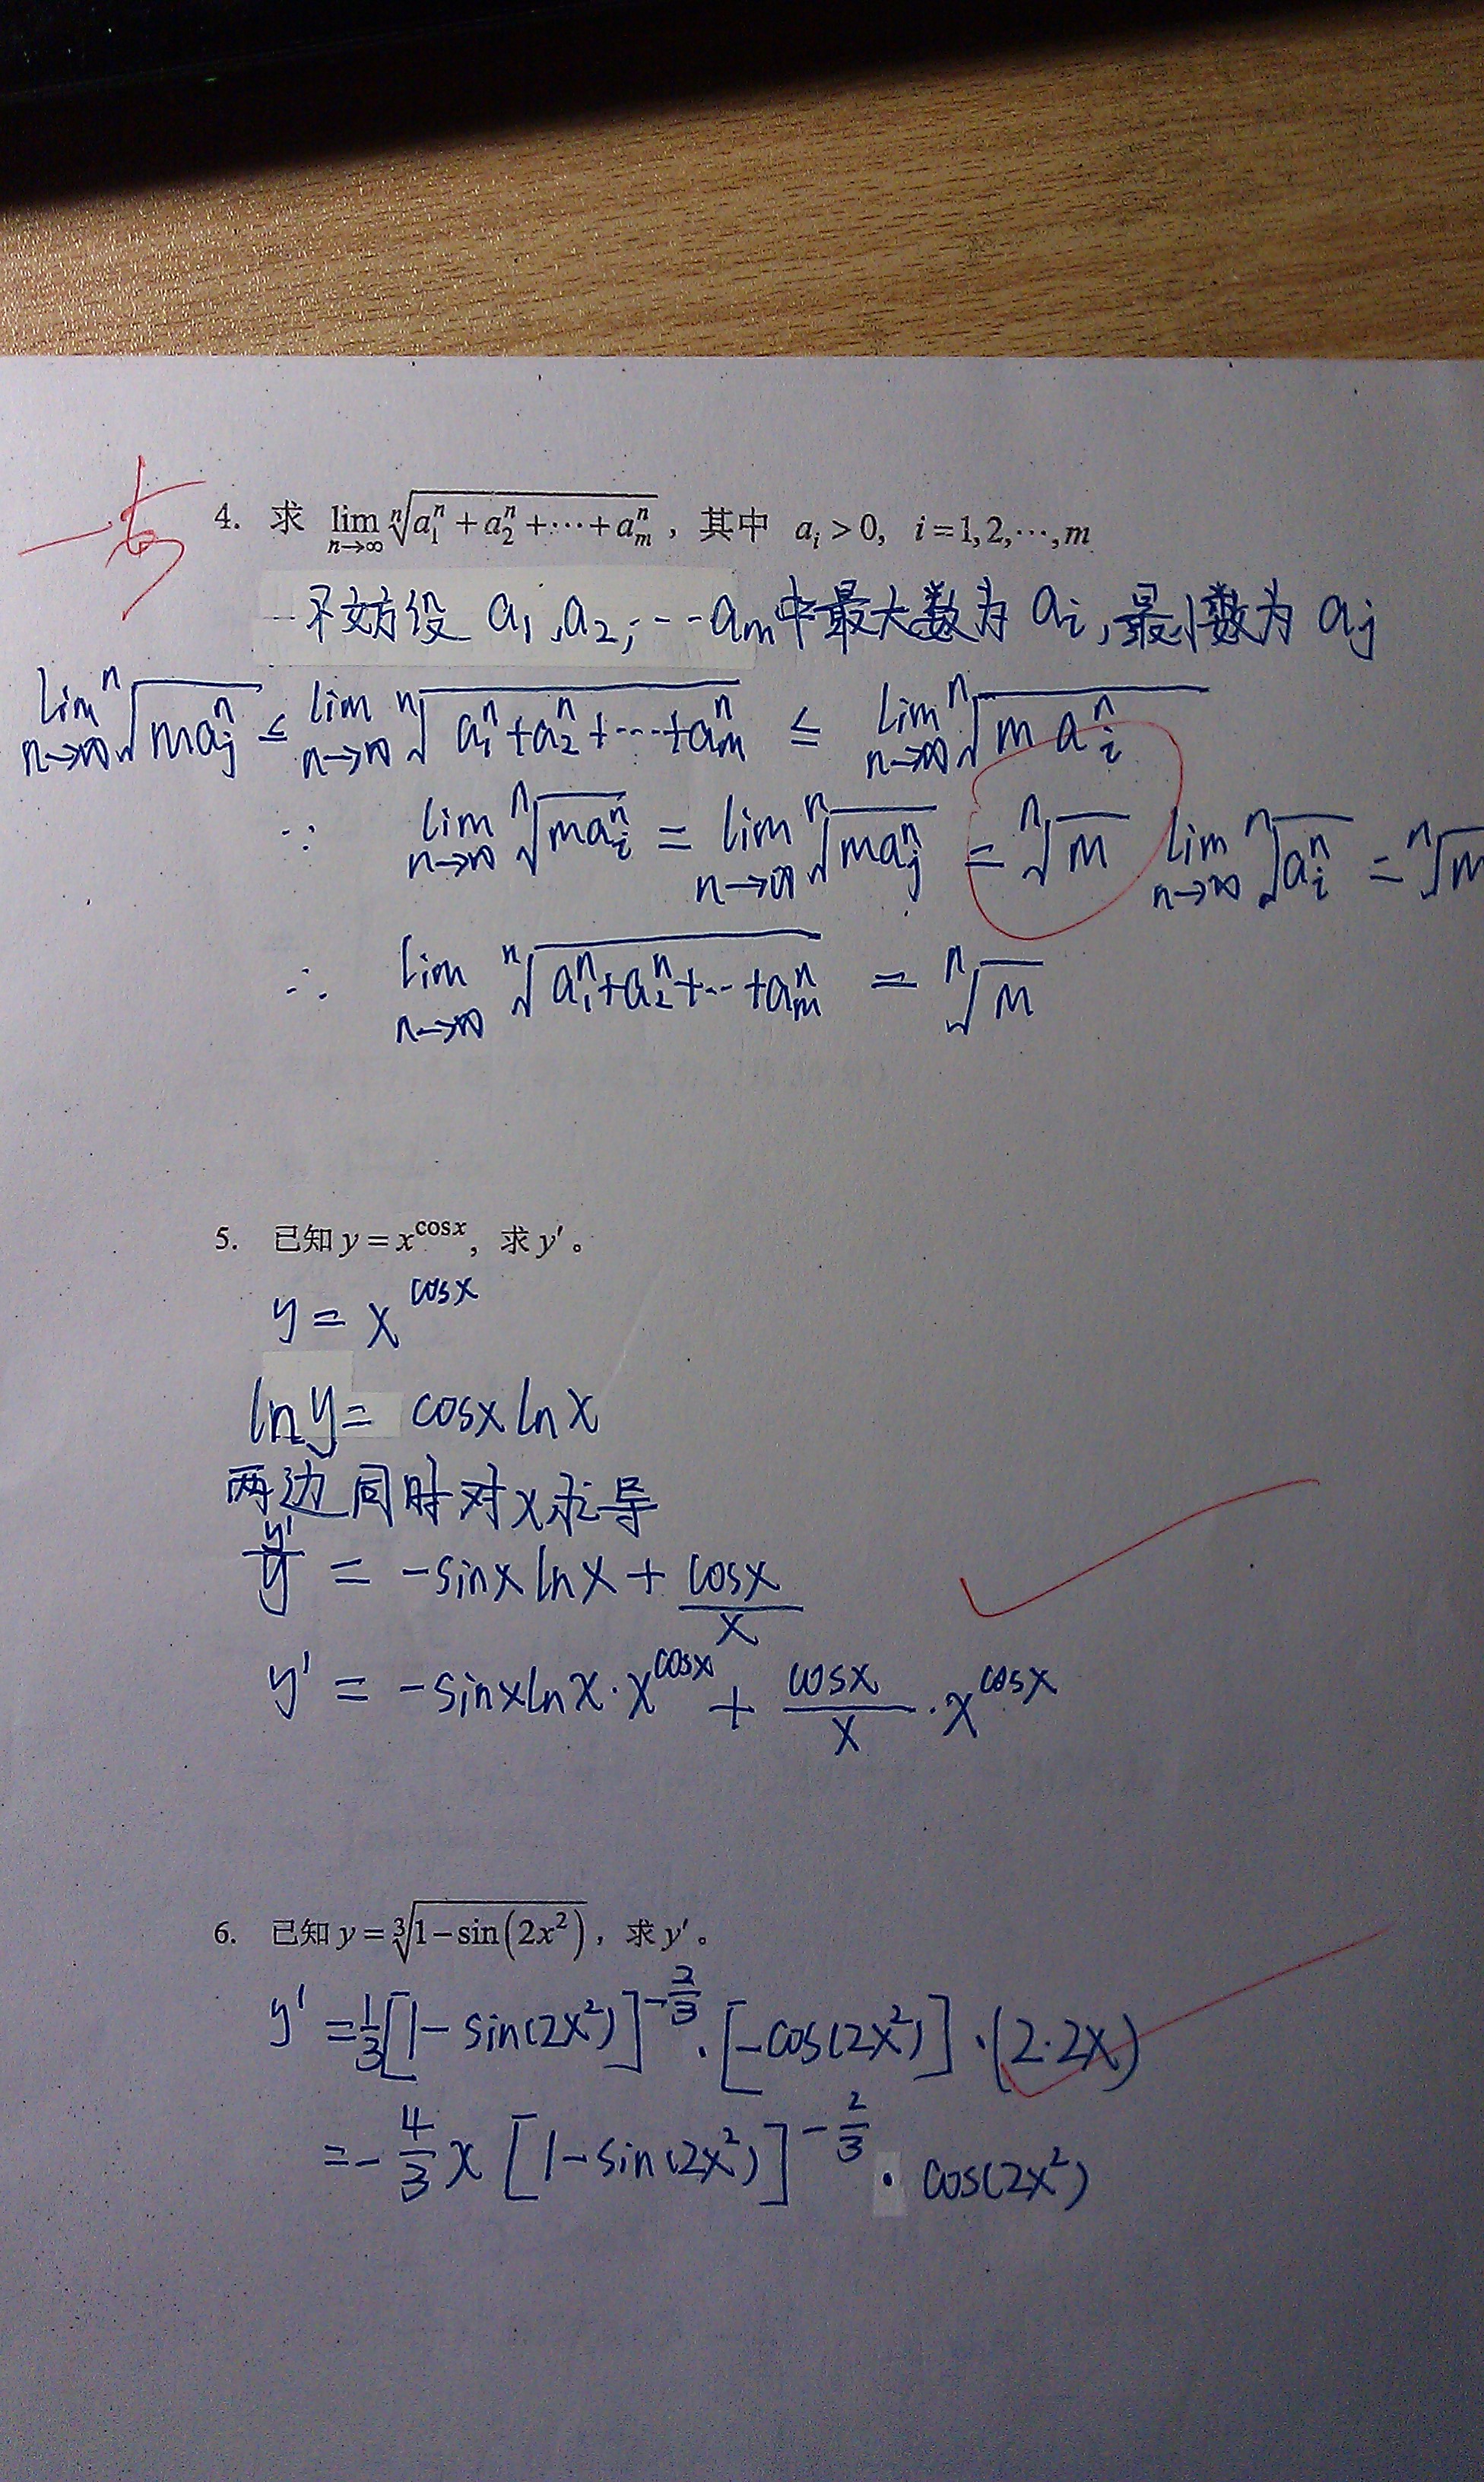 4. 求 lim n→∞ ⁿ√(a₁ⁿ + a₂ⁿ + ⋯ + aₘⁿ) , 其中 aᵢ > 0, i = 1, 2, ⋯, m
不妨设 a₁, a₂, ⋯ aₘ中最大数为 aᵢ, 最小数为 aⱼ
lim n→∞ ⁿ√(maⱼⁿ) ≤ lim n→∞ ⁿ√(a₁ⁿ+a₂ⁿ+⋯+aₘⁿ) ≤ lim n→∞ ⁿ√(m aᵢⁿ)
∵ lim n→∞ ⁿ√(maᵢⁿ) = lim n→∞ ⁿ√(maⱼⁿ) = ⁿ√m lim n→∞ ⁿ√(aᵢⁿ) = ⁿ√m
∴ lim n→∞ ⁿ√(a₁ⁿ+a₂ⁿ+⋯+aₘⁿ) = ⁿ√m
5. 已知 y = x^cosx, 求 y′。
y = x^cosx
lny = cosx lnx
两边同时对x求导
y'/y = -sinx lnx + cosx/x
y' = -sinxlnx · x^cosx + cosx/x · x^cosx
6. 已知 y = ³√(1−sin(2x²)) , 求 y′。
y' = 1/3[1-sin(2x²)]^(-2/3) · [-cos(2x²)] · (2·2x)
= -4/3 x [1-sin(2x²)]^(-2/3) · cos(2x²)